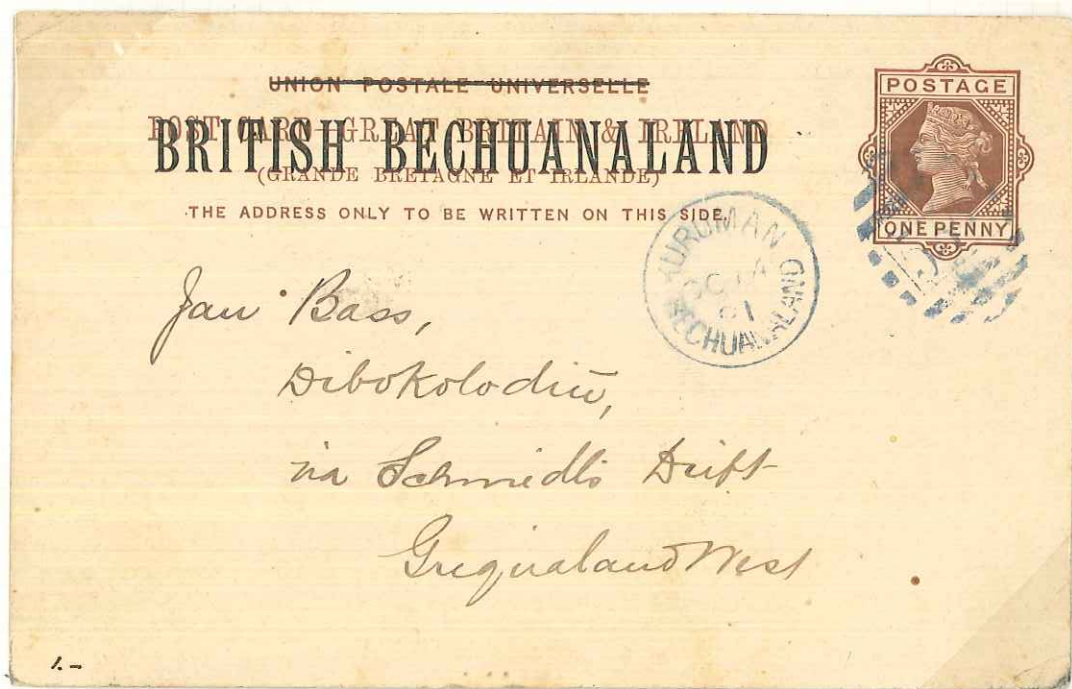 UNION POSTALE UNIVERSELLE
POST CARD - GREAT BRITAIN & IRELAND
BRITISH BECHUANALAND
(GRANDE BRETAGNE ET IRLANDE)
THE ADDRESS ONLY TO BE WRITTEN ON THIS SIDE.
POSTAGE
ONE PENNY
KURUMAN
OC 14
91
BECHUANALAND
Jan Bass,
via Schmidt's Drift
Griqualand West
1.-